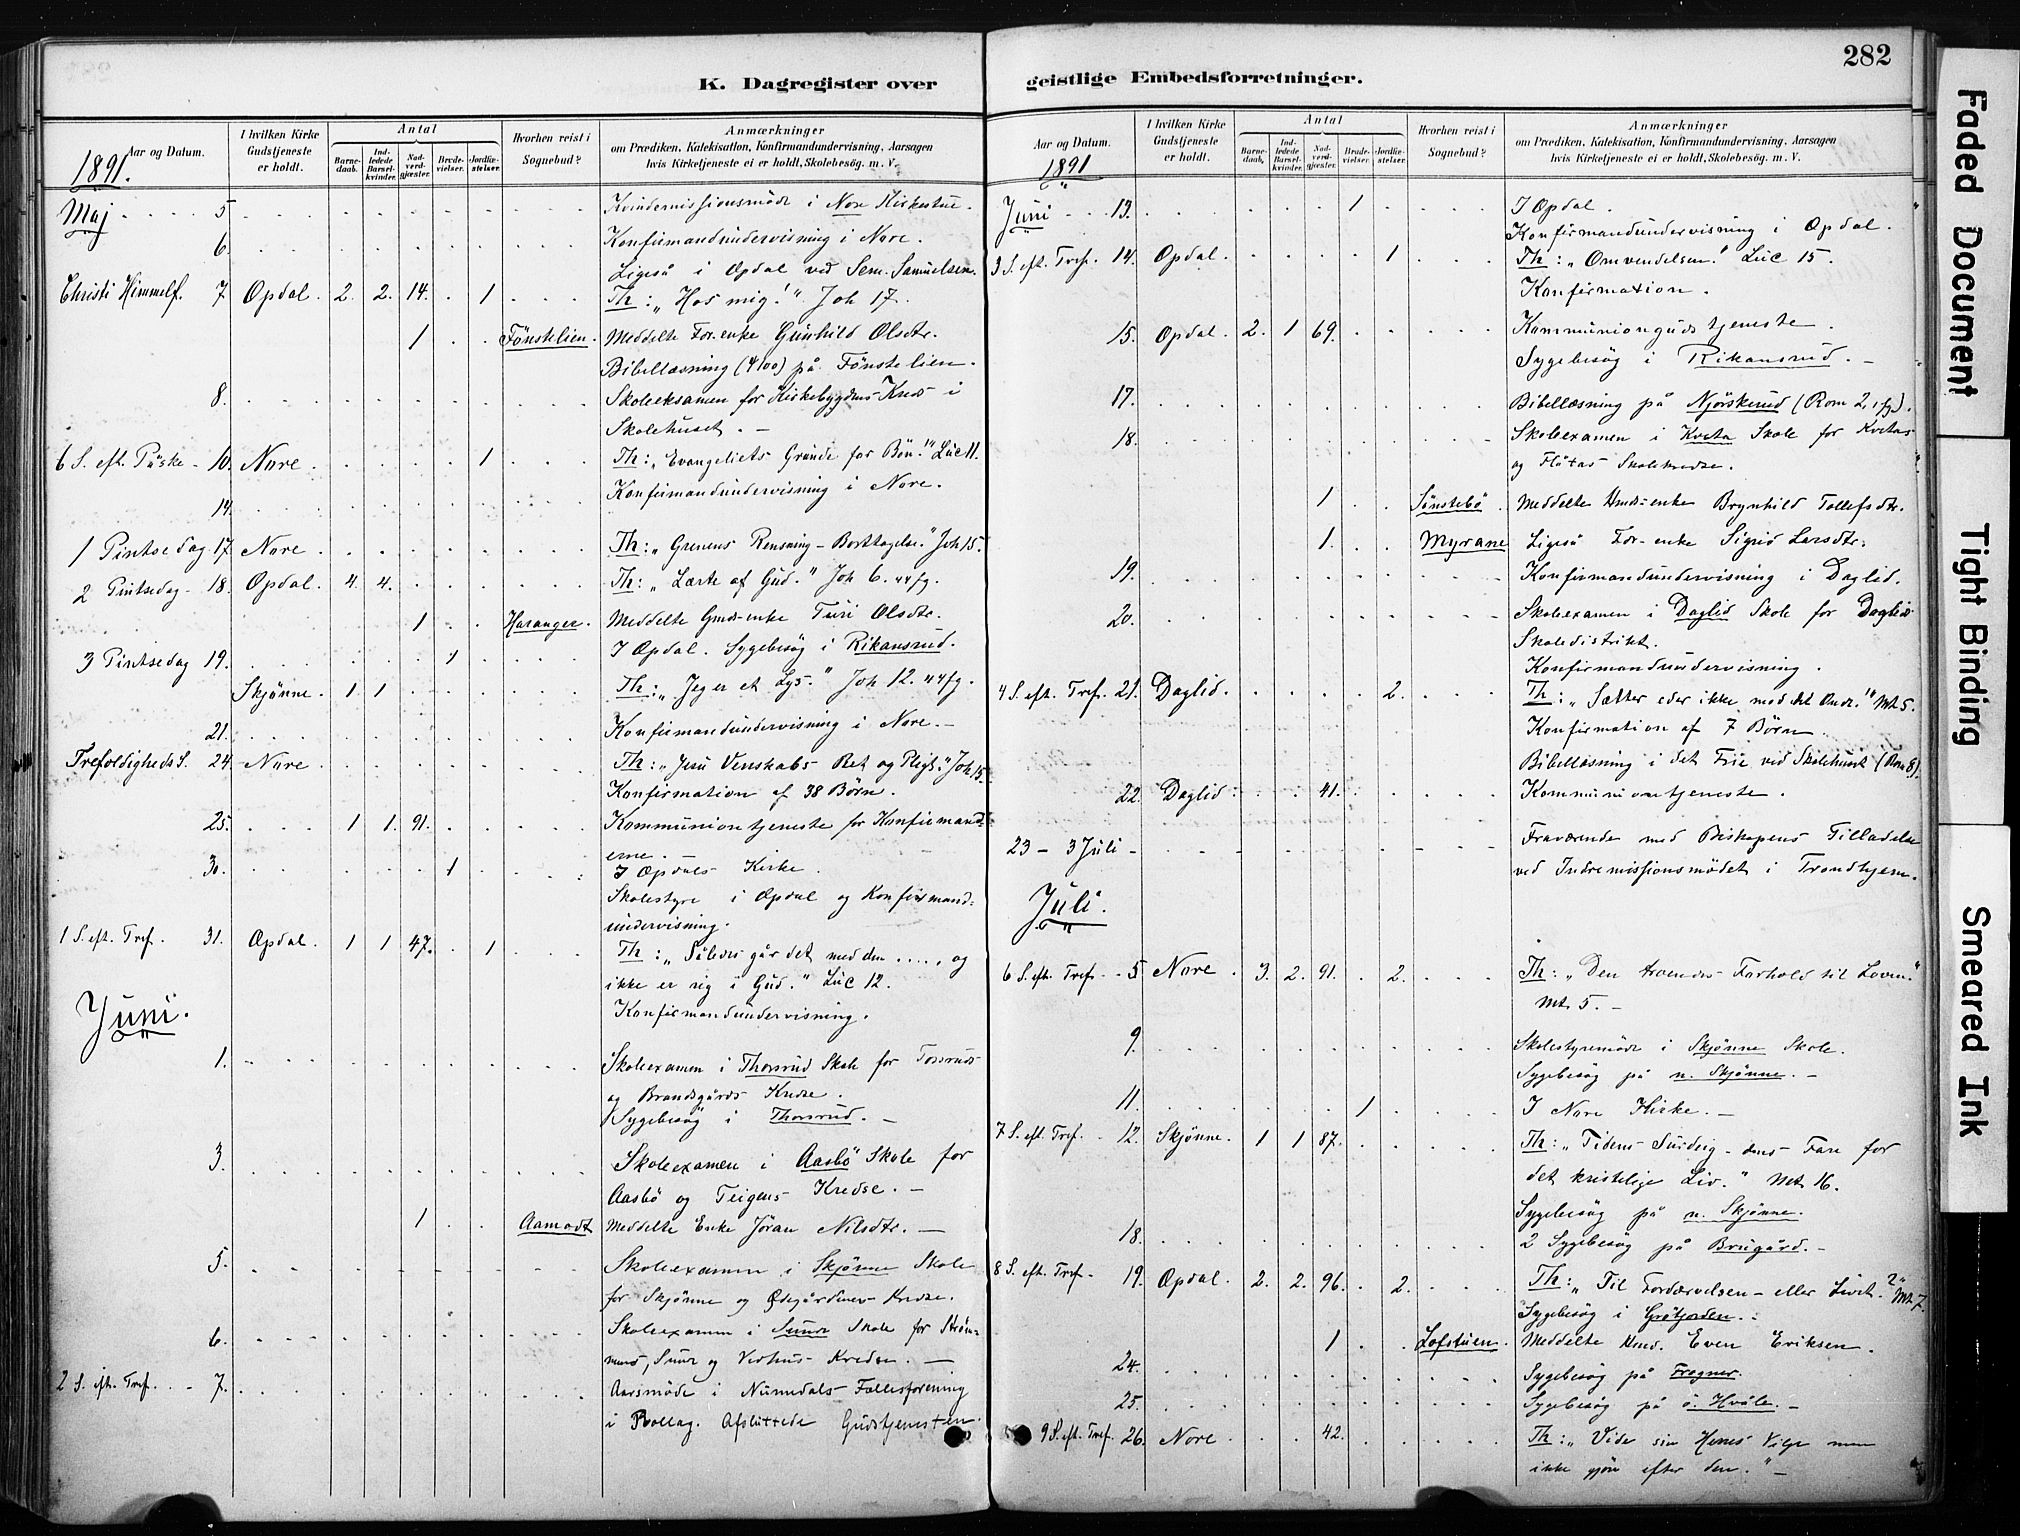 282
K. Dagregister over
Aar og Datum. I hvilken Kirke Gudstjeneste er holdt. Antal Barnedaab. Indledede Barselkvinder. Nadverdgjæster. Brudevielser. Jordfæstelser. Hvorhen reist i Sognebud? Anmærkninger om Prædiken, Katekisation, Konfirmandundervisning, Aarsagen hvis Kirketjeneste ei er holdt, Skolebesøg. m. V.
1891.
Maj 5 Kvindemissionsmöde i Nore Kirkestue.
6. Konfirmandundervisning i Nore.
Ligeså i Opdal ved Sem. Samuelsen.
Christi Himmelf. 7 Opdal. 2. 2. 14. 1 Th: „Hos mig!" Joh 17.
1 Fönstelien. Meddelte For. enke Gunhild Olsdtr.
Bibellæsning (4/100) på Fönstelien.
8. Skoleeksamen for Kirkebygdens Kreds i
Skolehuset. –
6 S. eft. Påske 10. Nore. 1 Th: „Evangeliets Grunde for Bön!" Luc 11.
14. Konfirmandundervisning i Nore.
1 Pintsedag 17. Nore. Th: „Grenens Rensning – Borttagelse." Joh 15.
2 Pintsedag 18. Opdal. 4. 4. Th: „Lærte af Gud." Joh 6. 44 fg.
1 Haranger. Meddelte Gmds-enke Turi Olsdtr.
3 Pintsedag 19. 1 I Opdal. Sygebesög i Rikansrud.
Skjönne. 1. 1 Th: „Jeg er et Lys." Joh 12. 44 fg.
21. Konfirmandundervisning i Nore. –
Trefoldigheds S. 24. Nore Th: „Jesu Venskabs Ret og Pligt." Joh 15.
Konfirmation af 38 Börn.
25. 1 1. 91. Kommuniontjeneste for Konfirmand-
erne. –
30. 1 I Opdals Kirke.
Skolestyre i Opdal og Konfirmand-
undervisning.
1 S. eft. Tref. 31. Opdal. 1 1 47. 1 Th: „Således går det med den ....., og
ikke er rig i Gud." Luc 12.
Konfirmandundervisning.
Juni.
1. Skoleexamen i Thorsrud Skole for Tossruds
og Brandsgårds Kredse.
Sygebesög i Thorsrud. –
3. Skoleexamen i Aasbö Skole for
Aasbö og Teigens Kredse. –
1 Aamodt Meddelte Enke Jöran Nilsdtr. –
5. Skoleexamen i Skjönne Skole
for Skjönne og Ödegårdenes Kredse.
6. Skoleexamen i Skole for
og Kredse. –
2 S. eft. Tref. 7. Aarsmöde i Numedals Fællesforening
i Rollag. Afsluttede Gudstjenesten.
geistlige Embedsforretninger.
Aar og Datum. I hvilken Kirke Gudstjeneste er holdt. Antal Barnedaab. Indledede Barselkvinder. Nadverdgjæster. Brudevielser. Jordfæstelser. Hvorhen reist i Sognebud? Anmærkninger om Prædiken, Katekisation, Konfirmandundervisning, Aarsagen hvis Kirketjeneste ei er holdt, Skolebesøg. m. V.
1891
Juni 13. 1 I Opdal.
Konfirmandundervisning i Opdal.
3 S. eft. Tref. 14. Opdal. 1 Th: „Omvendelsen!" Luc 15.
Konfirmation.
15. Opdal. 2. 1 69. Kommuniongudstjeneste.
Sygebesög i Rikansrud. –
17. Bibellæsning på Njörskerud (Rom 2, 1 fg).
18. Skoleexamen i Kveta Skole for Kvetas
og Flötas Skolekredse.
1 Sönstebö. Meddelte Hmds-enke Brynhild Tollefsdtr.
1. Myrane Ligeså For-enke Sigrid Larsdtr.
19. Konfirmandundervisning i Daglid.
20. Skoleexamen i Daglid Skole for Daglid
Skoledistrikt.
Konfirmandundervisning.
4 S. eft. Tref. 21. Daglid. 2. Th: „Sætter eder ikke mod det Onde!" Mt 5.
Konfirmation af 7 Börn.
Bibellæsning i det Frie ved Skolehuset (Rom 8).
22. Daglid. 41. Kommuniontjeneste.
23 – 3 Juli – Fraværende med Biskopens Tilladelse
ved Indremissionsmödet i Trondhjem.
Juli.
6 S. eft. Tref. 5. Nore. 3. 2. 91. 2. Th: „Den troendes Forhold til Loven."
Mt 5. –
9. Skolestyremöde i Skjönne Skole.
Sygebesög på n. Skjönne. –
11. 1 I Nore Kirke. –
7 S. eft. Tref. 12. Skjönne. 1 1 87. Th: „Tidens Surdeig – dens Fare for
det kristelige Liv." Mt 16.
Sygebesög på n. Skjönne.
18. 2 Sygebesög på Brugård. –
8 S. eft. Tref. 19. Opdal. 2. 2. 96. 2. Th: „Til Fordærvelsen – eller Livet?" Mt 7.
Sygebesög i Grötjorden.
1 Lofstuen. Meddelte Kmd. Even Eriksen.
24. Sygebesög på Frogner.
25. Sygebesög på ö. Hvåle. –
9 S. eft. Tref. 26. Nore. 42. Th: „Vide sin Herres Vilje men
ikke gjöre efter den." –
Faded Document
Tight Binding
Smeared Ink